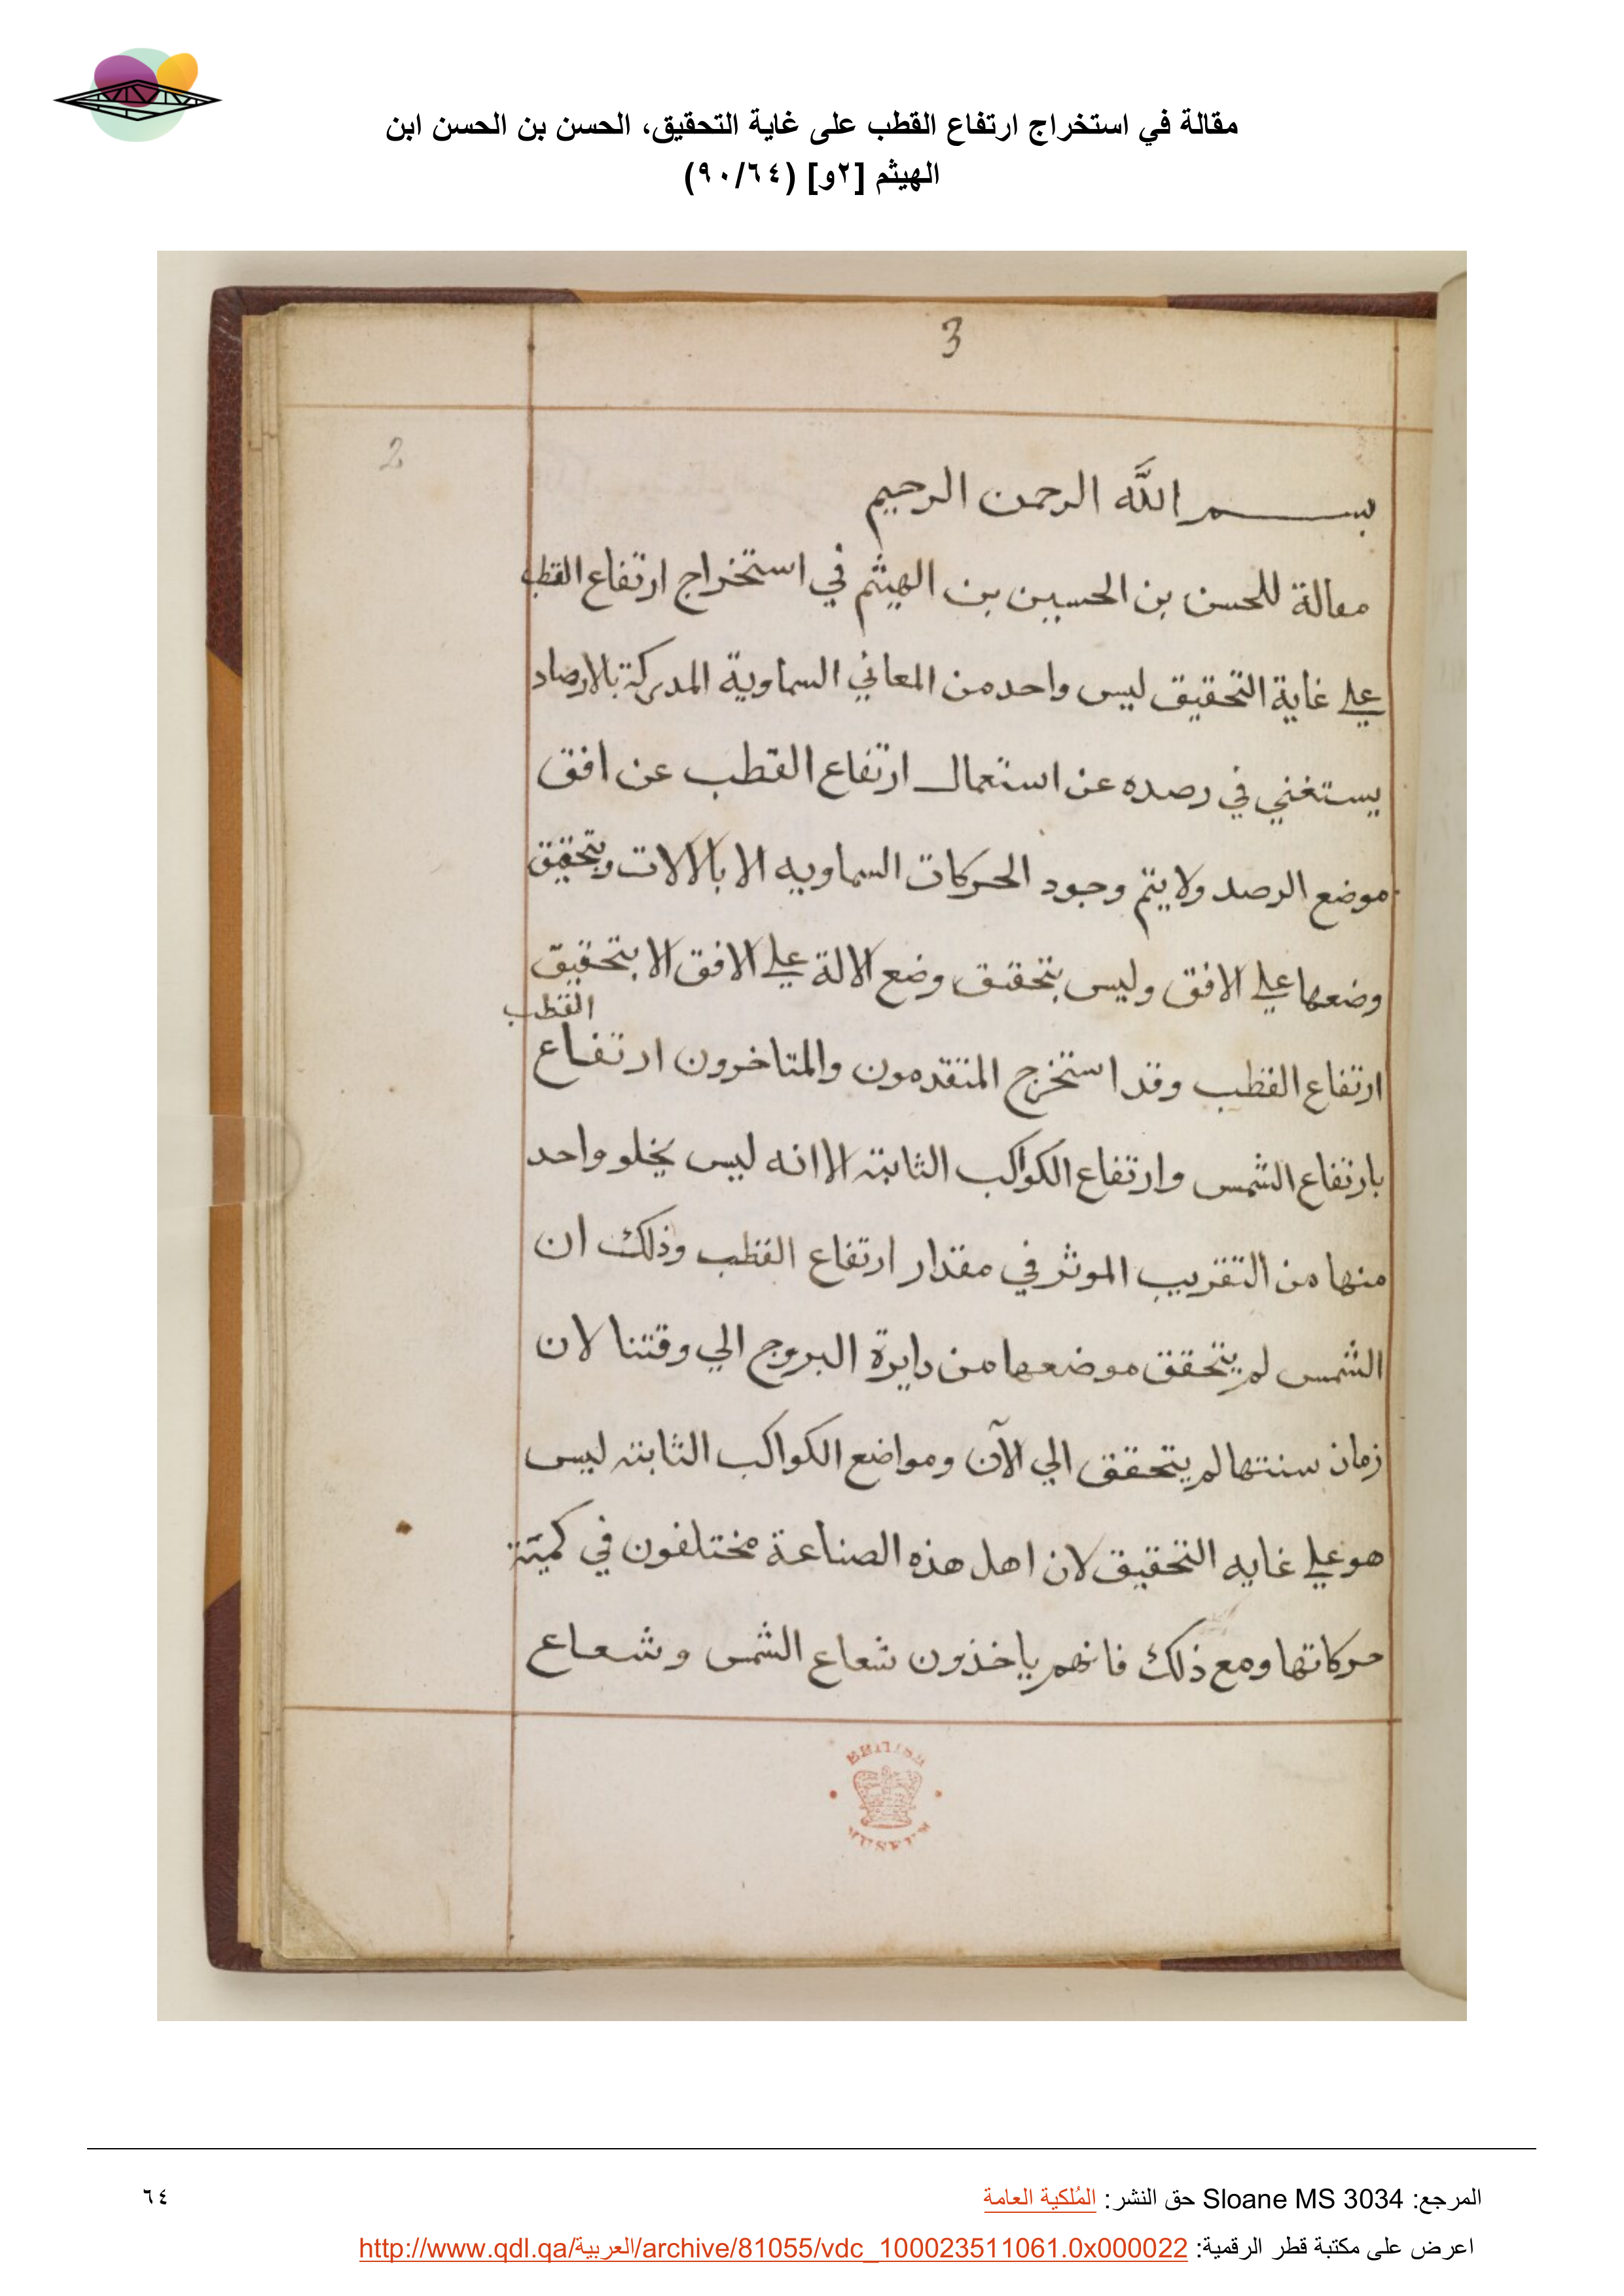 مقالة في استخراج ارتفاع القطب على غاية التحقيق، الحسن بن الحسن ابن
الهيثم [٢و] (٩٠/٦٤)
3
2
بسم الله الرحمن الرحيم
مقالة للحسن بن الحسين بن الهيثم في استخراج ارتفاع القطب
علي غاية التحقيق ليس واحد من المعاني السماوية المدركة بالارصاد
يستغني في رصده عن استعمال ارتفاع القطب عن افق
موضع الرصد ولا يتم وجود الحركات السماويه الا بالالات وبتحقيق
وضعها علي الافق وليس بتحقق وضع الالة علي الافق الا بتحقيق
القطب
ارتفاع القطب وقد استخرج المتقدمون والمتاخرون ارتفاع
بارتفاع الشمس وارتفاع الكواكب الثابتة الا انه ليس يخلو واحد
منها من التقريب الموثر في مقدار ارتفاع القطب وذلك ان
الشمس لم يتحقق موضعها من دايرة البروج الي وقتنا لان
زمان سنتها لم يتحقق الي الآن ومواضع الكواكب الثابتة ليس
هو علي غايه التحقيق لان اهل هذه الصناعة مختلفون في كميّة
حركاتها ومع ذلك فانهم ياخذون شعاع الشمس وشعاع
BRITISH
MUSEUM
المرجع: Sloane MS 3034 حق النشر: المُلكية العامة
٦٤
اعرض على مكتبة قطر الرقمية: http://www.qdl.qa/العربية/archive/81055/vdc_100023511061.0x000022